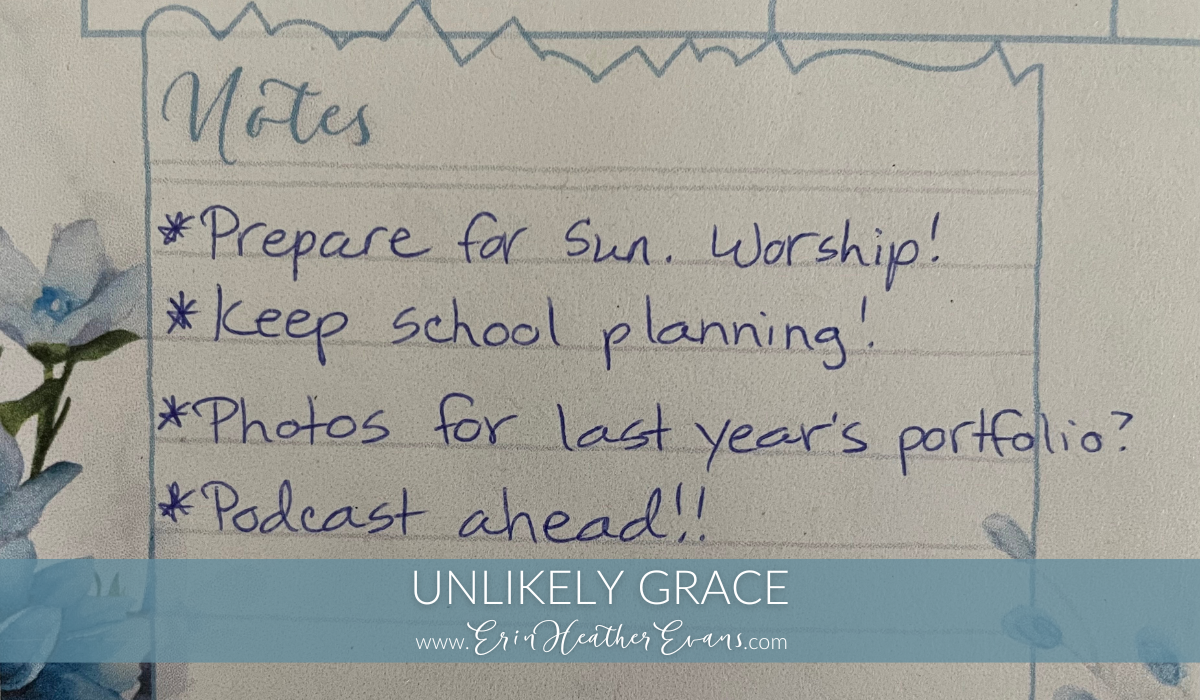 Notes
*Prepare for Sun. Worship!
*Keep school planning!
*Photos for last year's portfolio?
*Podcast ahead!!
UNLIKELY GRACE
www.ErinHeatherEvans.com